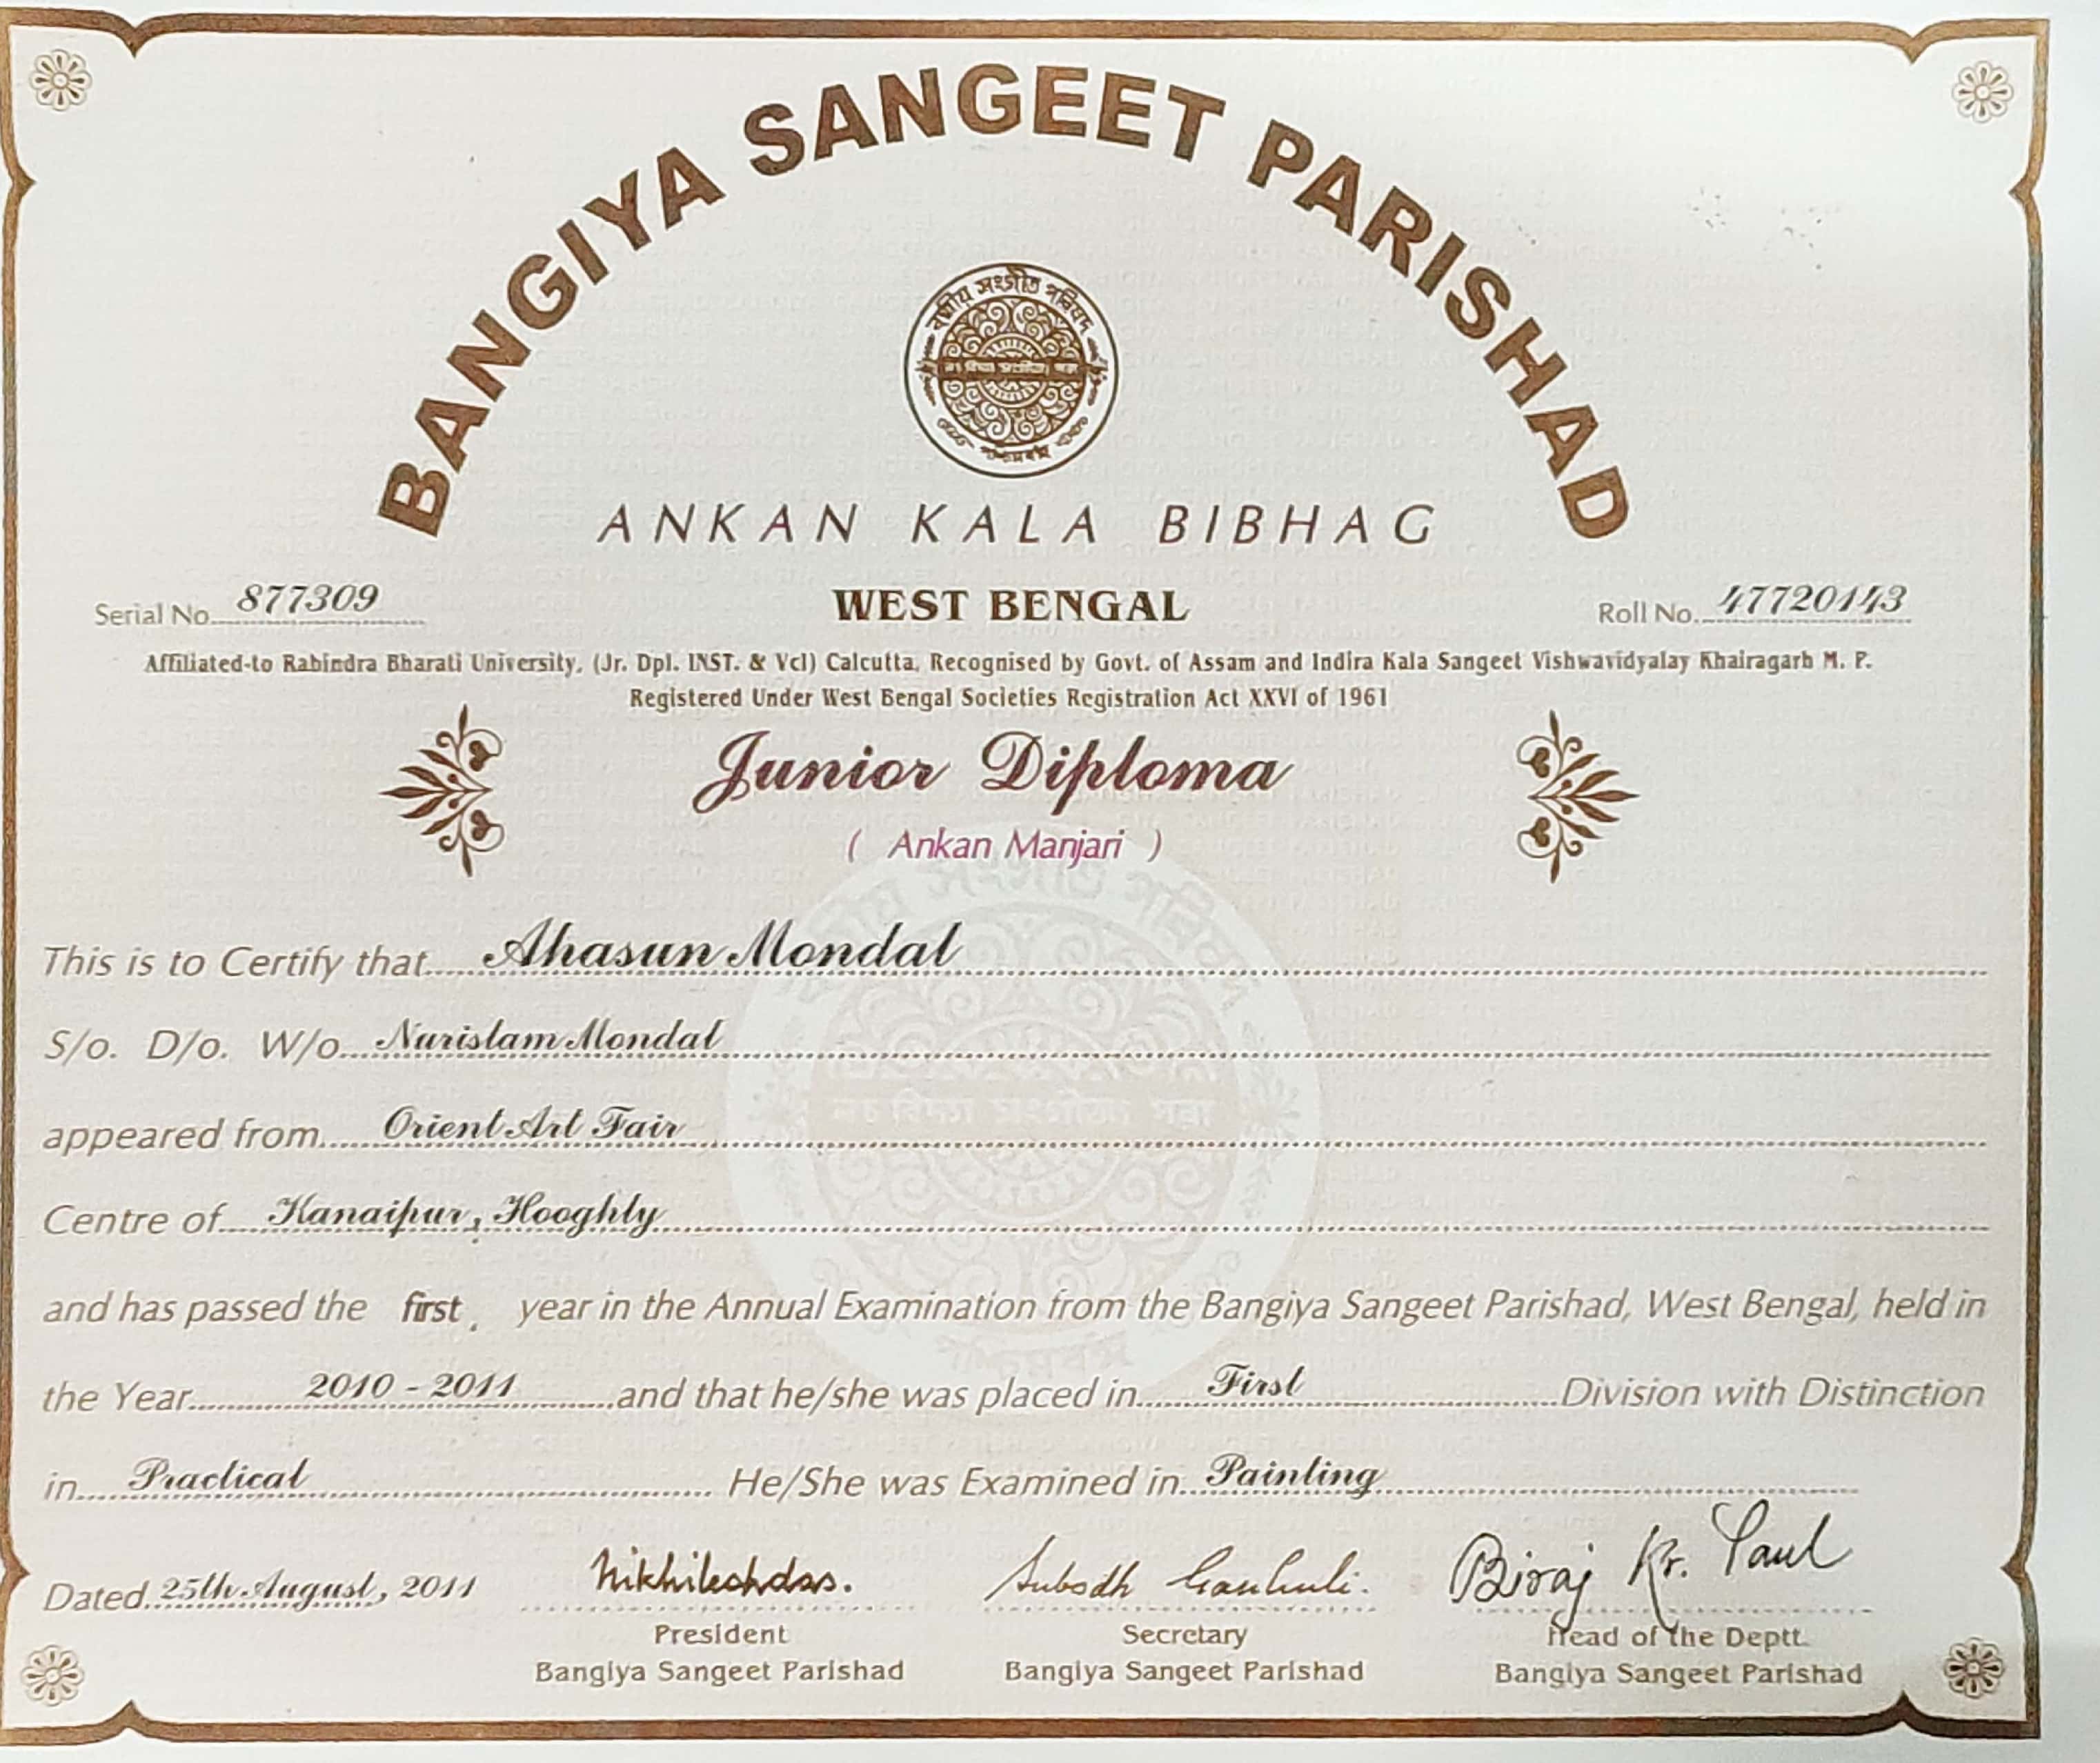 BANGIYA SANGEET PARISHAD
বঙ্গীয় সংগীত পরিষদ
পশ্চিমবঙ্গ
ANKAN KALA BIBHAG
Serial No. 877309
WEST BENGAL
Roll No. 47720143
Affiliated-to Rabindra Bharati University, (Jr. Dpl. INST. & Vcl) Calcutta, Recognised by Govt. of Assam and Indira Kala Sangeet Vishwavidyalay Khairagarh M. P.
Registered Under West Bengal Societies Registration Act XXVI of 1961
Junior Diploma
( Ankan Manjari )
This is to Certify that Ahasun Mondal
S/o. D/o. W/o. Nurislam Mondal
appeared from Orient Art Fair
Centre of Kanaipur, Hooghly
and has passed the first, year in the Annual Examination from the Bangiya Sangeet Parishad, West Bengal, held in
the Year 2010 - 2011 and that he/she was placed in First Division with Distinction
in Practical He/She was Examined in Painting
Dated 25th August, 2011
Nikhileshdas.
Subodh Ganguli.
Biraj Kr. Paul
President
Secretary
Head of the Deptt.
Bangiya Sangeet Parishad
Bangiya Sangeet Parishad
Bangiya Sangeet Parishad